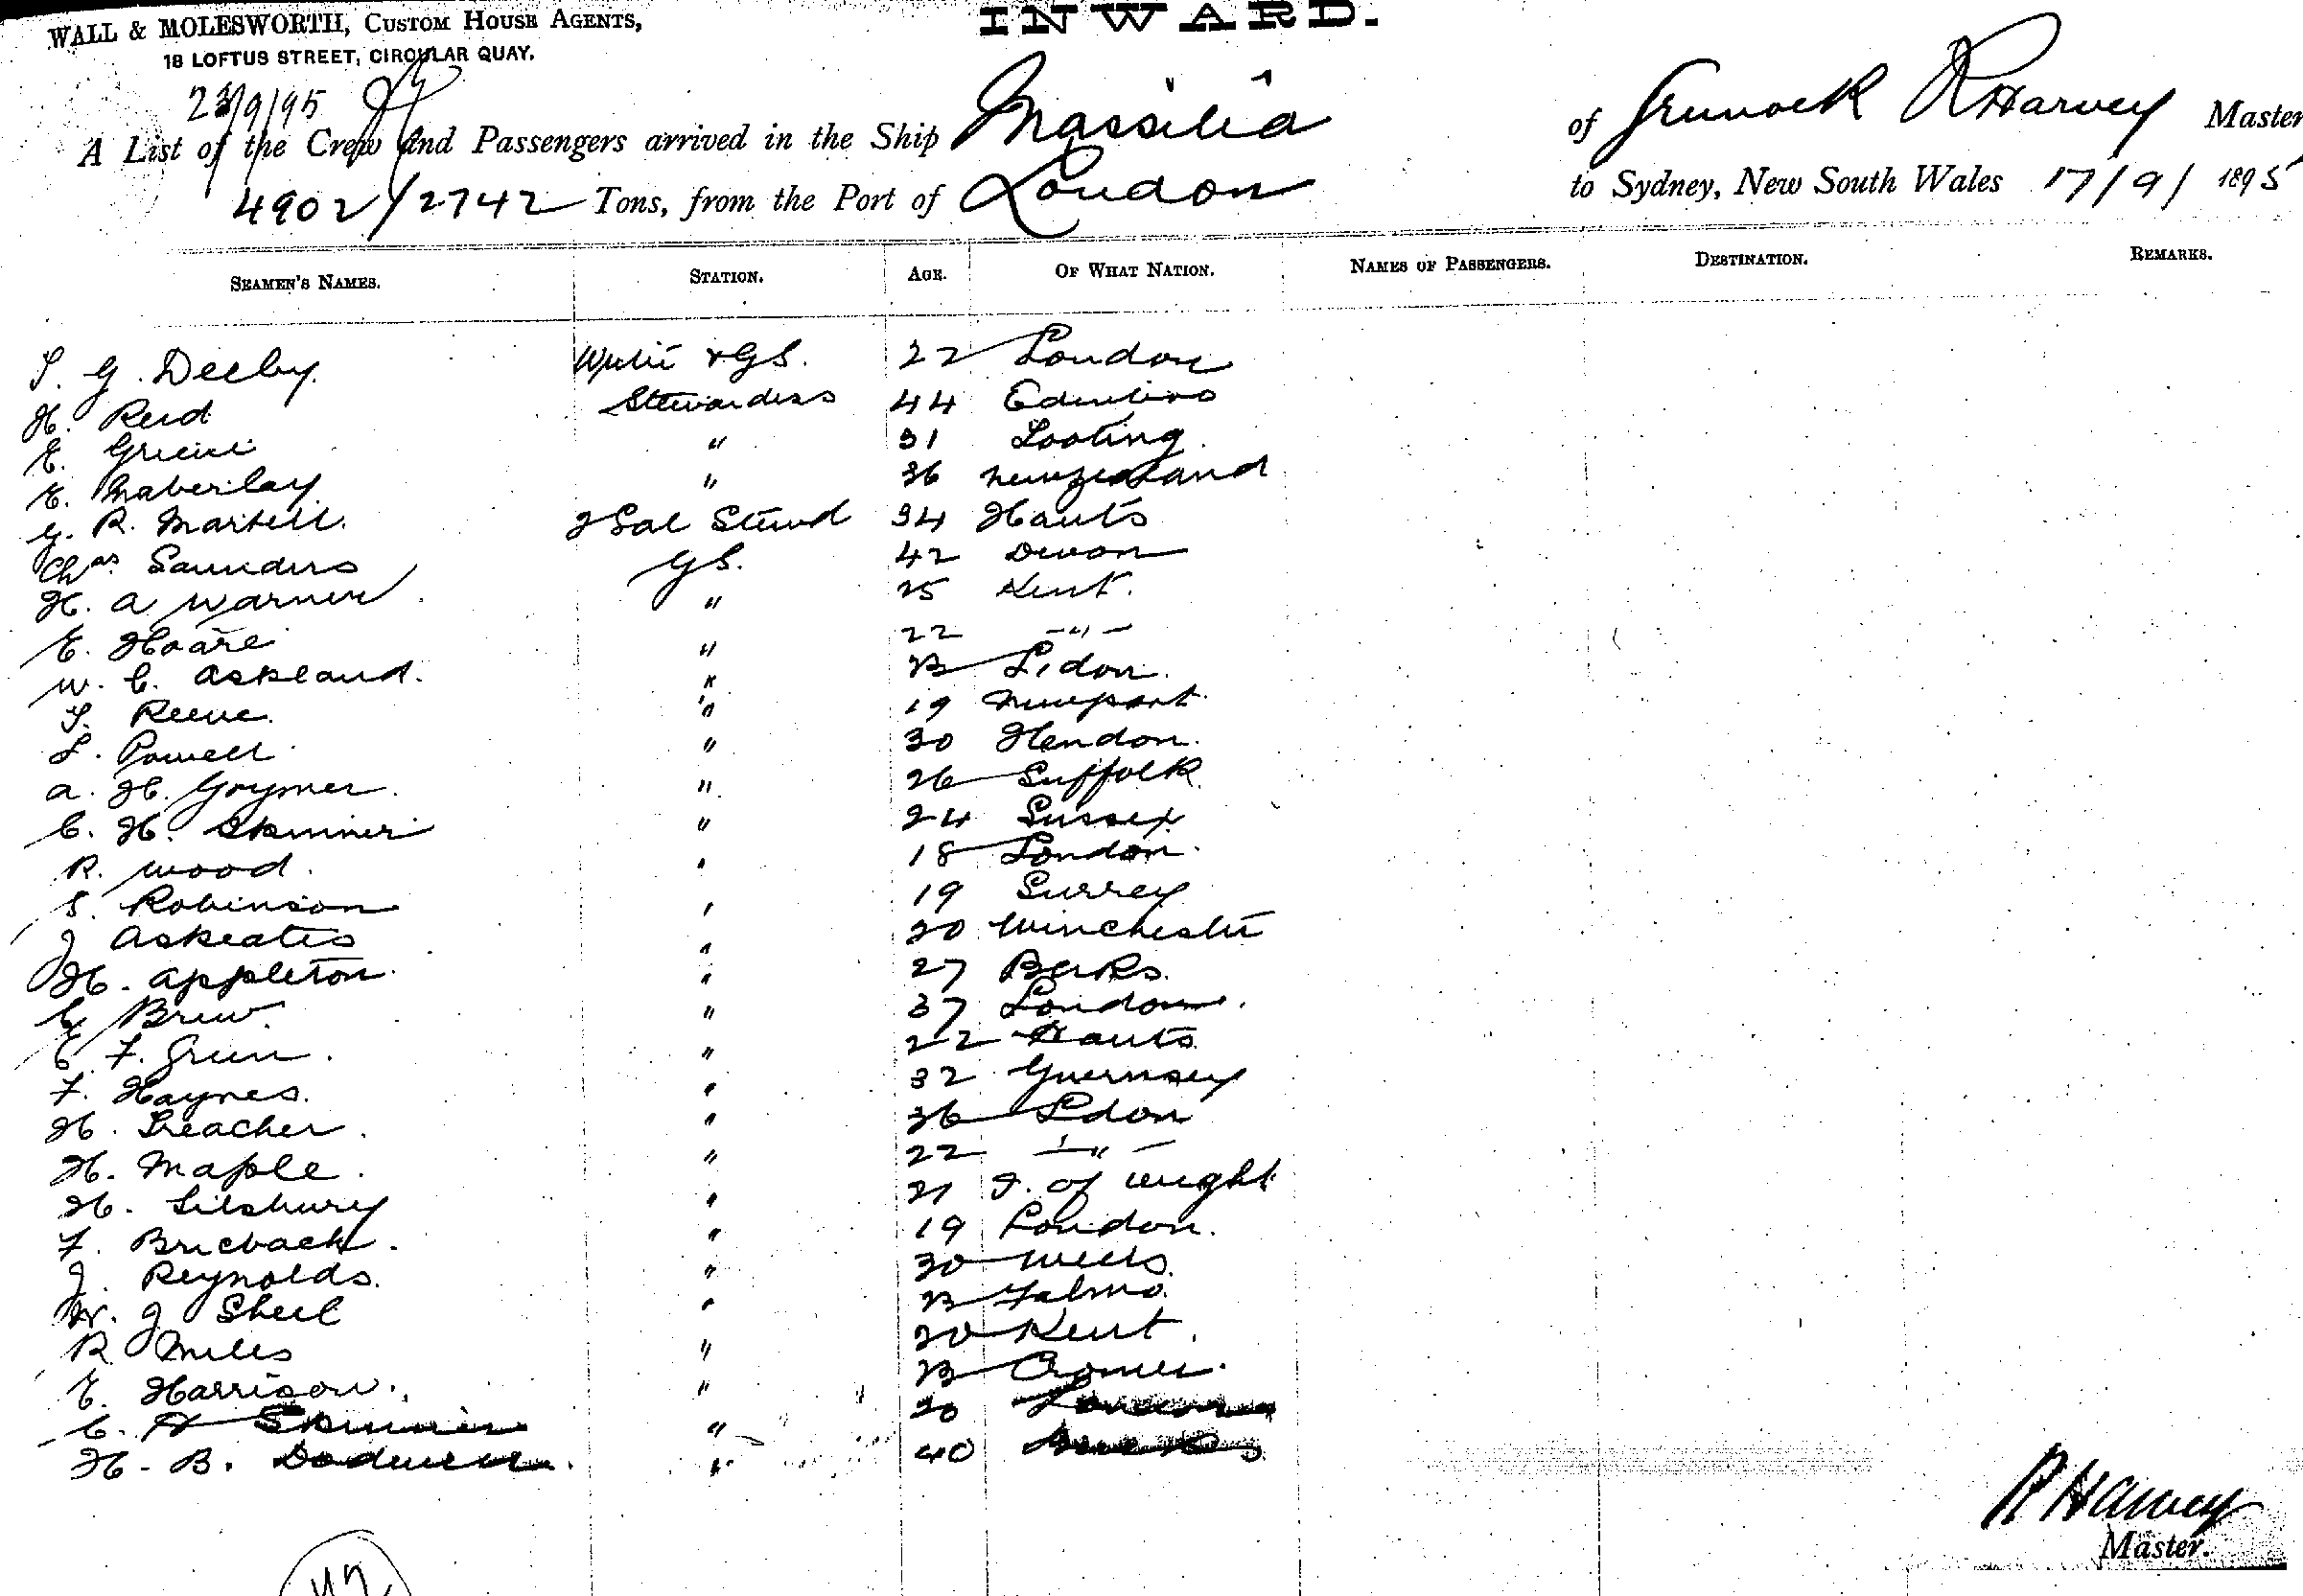 WALL & MOLESWORTH, CUSTOM HOUSE AGENTS,
18 LOFTUS STREET, CIRCULAR QUAY.
INWARD.
23/9/95
A List of the Crew and Passengers arrived in the Ship Massilia of Greenock R Harvey Master
4902/2742 Tons, from the Port of London to Sydney, New South Wales 17/9/1895
SEAMEN'S NAMES. STATION. AGE. OF WHAT NATION. NAMES OF PASSENGERS. DESTINATION. REMARKS.
S. G. Deeby. & GS. 22 London
H. Reid Stewardess 44 Edinboro
E. Greene " 31 Tooting.
E. Maberlay " 36 New Zealand
G. R. Martell. 2 Sal Stewd 34 Hants
Chas Saunders GS. 42 Devon
H. A Warner " 25 Kent.
E. Hoare 22 -"-
W. C. Askland. " 23 Ldon.
S. Reeve. " 19 Newport.
L. Powell " 30 Hendon.
A. H. Grymer. " 26 Suffolk
C. H. Skinner " 24 Sussex
R. Wood. " 18 London.
S. Robinson " 19 Surrey
J Askeates " 20 Winchester
H. Appleton. " 27 Berks.
Brew. " 37 London.
E F. Green. " 22 Hants
F. Haynes. " 32 Guernsey
H. Treacher. " 36 Ldon
H. Maple. " 22 -"-
H. Tilsbury " 21 I. of Wight
F. Bricback. " 19 London.
J. Reynolds. " 30 Wells.
W. J Sheil " 23 Falmo.
R Miles " 20 Kent.
E. Harrison. " 23 Cromer.
C. H Skinner " 20
H. B. " 40
R Harvey
Master.